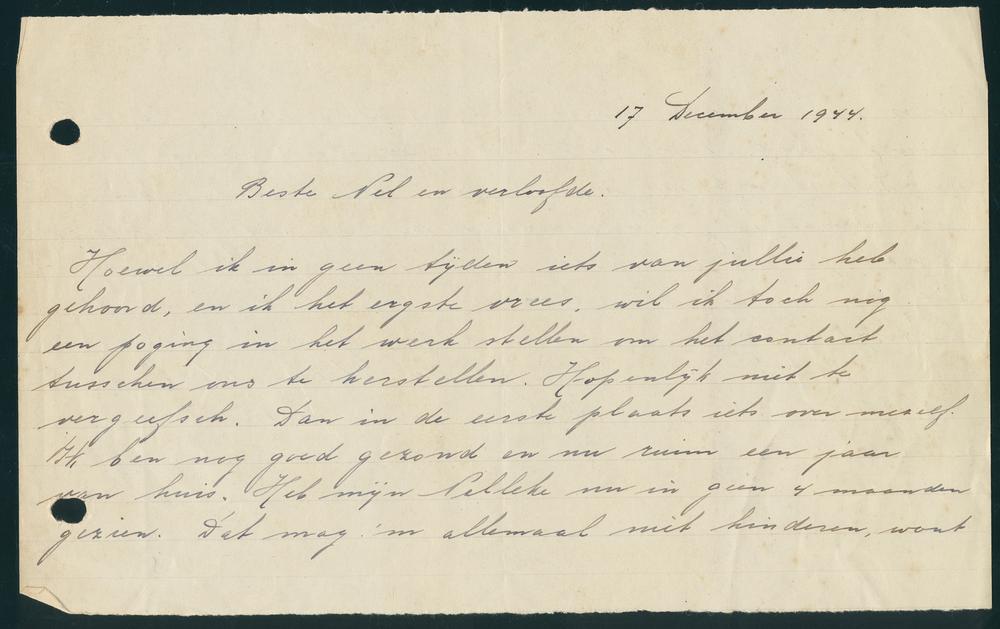 17 December 1944.
Beste Nel en verloofde.
Hoewel ik in geen tijden iets van jullie heb
gehoord, en ik het ergste vrees, wil ik toch nog
een poging in het werk stellen om het contact
tusschen ons te herstellen. Hopenlijk niet te
vergeefsch. Dan in de eerste plaats iets over mezelf.
Ik ben nog goed gezond en nu ruim een jaar
van huis. Heb mijn Nelleke nu in geen 4 maanden
gezien. Dat mag 'm allemaal niet hinderen, want